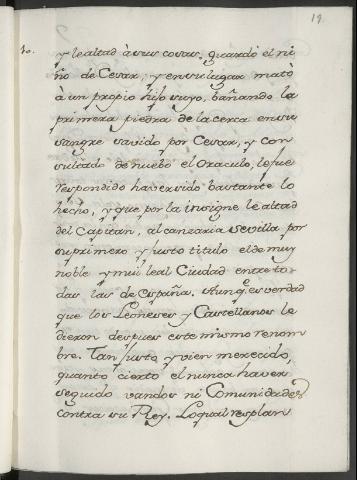 19.
10.
y lealtad à sus cosas, guardó el ni
ño de Cesar, y en su lugar mató
à un propio hijo suyo, bañando la
primera piedra de la cerca en su
sangre savido por Cesar, y con
sultado de nuebo el Oraculo, le fue
respondido haver sido bastante lo
hecho, y que por la insigne lealtad
del Capitan, alcanzaria Sevilla por
su primero y justo titulo el de muy
noble y mui leal Ciudad entre to
das las de España. Aunq.e es verdad
que los Leoneses y Castellanos le
dieron despues este mismo renom
bre. Tan justo, y vien merecido,
quanto cierto el nunca haver
seguido vandos ni Comunidades
contra su Rey. Lo qual resplan